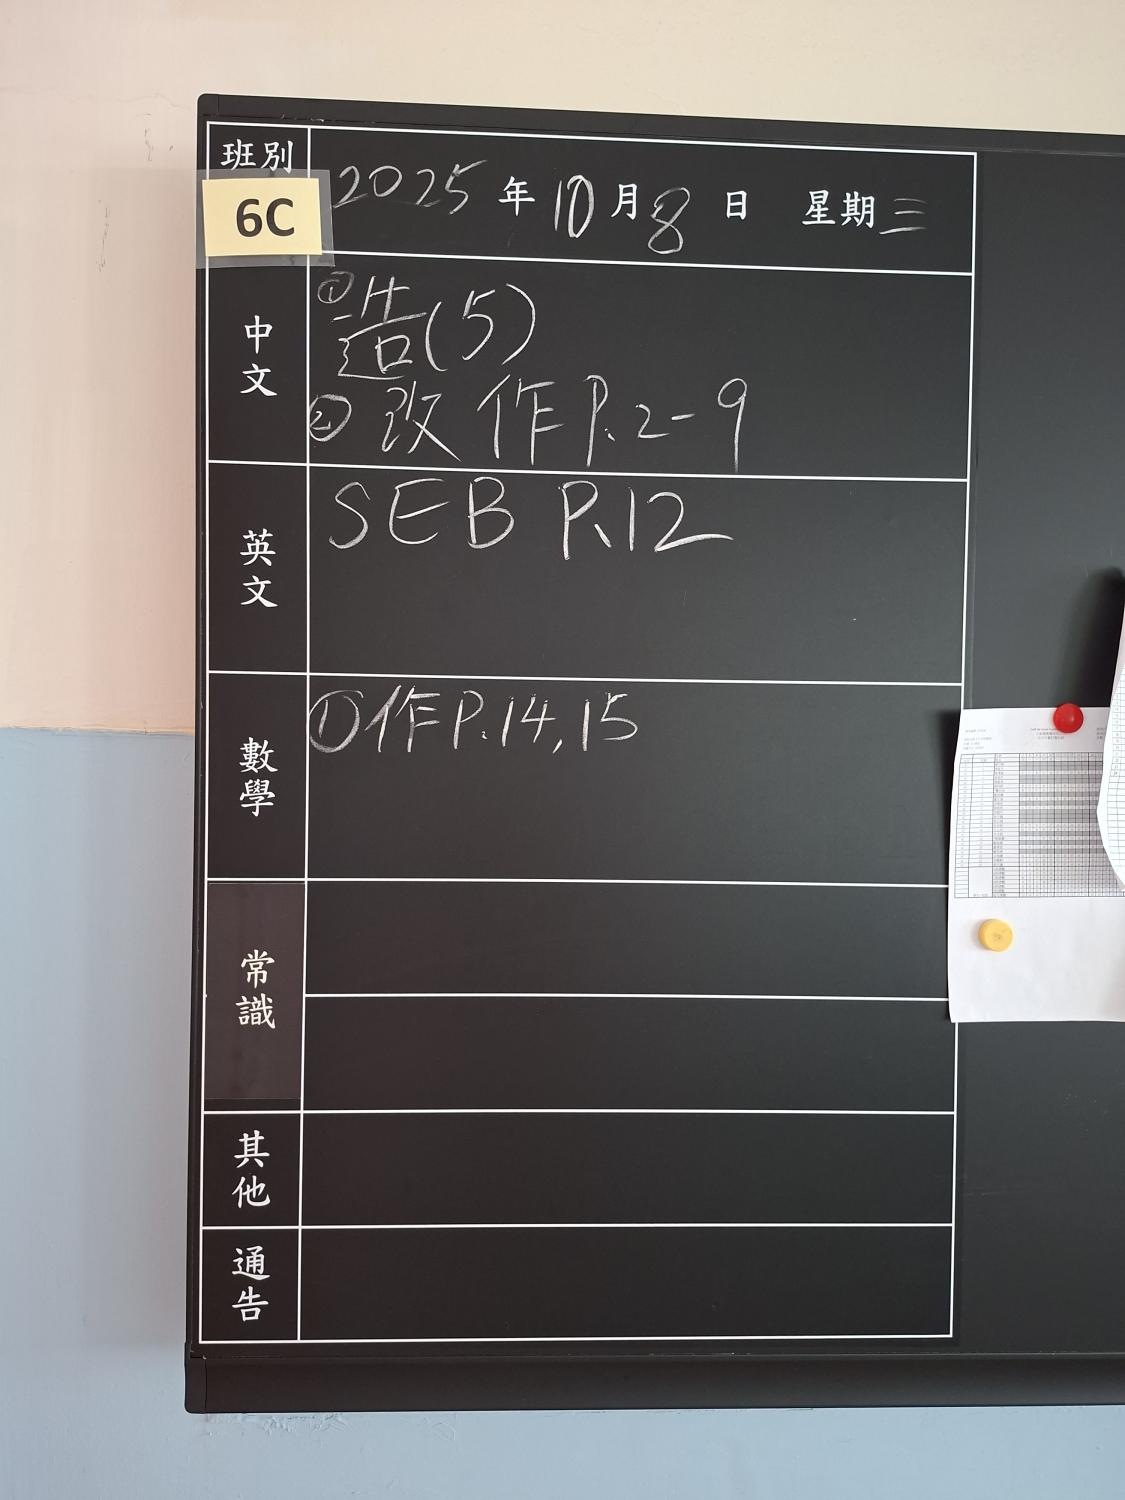 班別
6C
2025年10月8日 星期三
中文
①造(5)
②改作P.2-9
英文
SEB P.12
數學
①作P.14,15
常識
其他
通告